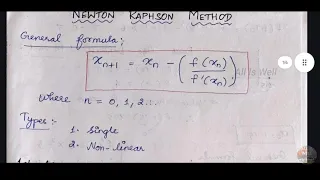 NEWTON RAPHSON METHOD
General formula:
x_{n+1} = x_n - ( f(x_n) / f'(x_n) )
All is Well
where n = 0, 1, 2...
Types:
1. Single
2. Non-linear